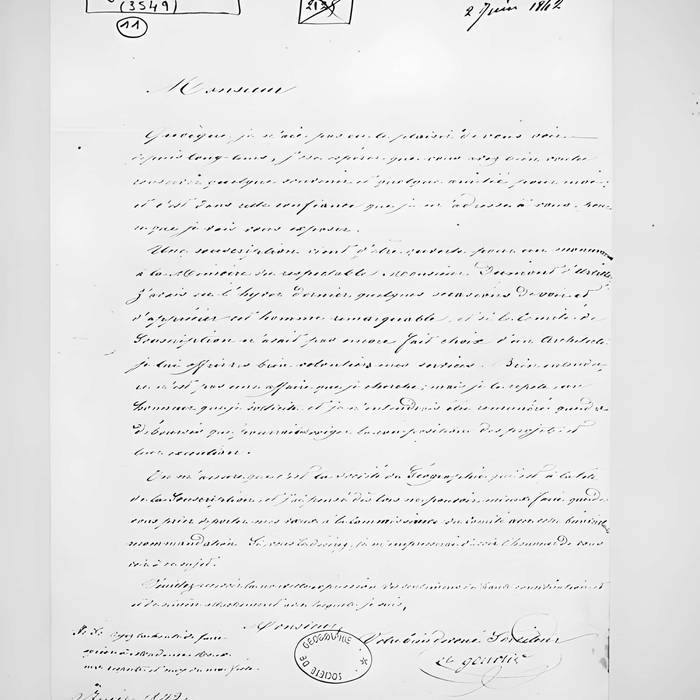 (3549)
11
2138
2 Juin 1842
Monsieur
Quoique je n'aie pas eu le plaisir de vous voir
depuis long-tems, j'ose espérer que vous avez bien voulu
conserver quelque souvenir et quelque amitié pour moi;
et c'est dans cette confiance que je m'adresse à vous, pour
ce que je vais vous exposer.
Une souscription vient d'être ouverte pour un monument
à la Mémoire du respectable Monsieur Dumont d'Urville
J'avais eu l'hyver dernier quelques occasions de voir et
d'apprécier cet homme remarquable, et si le Comité de
Souscription n'avait pas encore fait choix d'un Architecte
je lui offrirais bien volontiers mes services. Bien entendu
ce n'est pas une affaire que je cherche; mais je le répète un
honneur que je sollicite et je n'entendrais être remunéré que de
déboursés que pourrait exiger la composition des projets et
leur execution.
On m'assure que c'est la Société de Géographie qui est à la tête
de la Souscription et j'ai pensé dès lors ne pouvoir mieux faire que de
vous prier de porter mes vœux à la connaissance du Comité avec votre bienveillante
recommandation. Si vous le désirez, je m'empresserai d'avoir l'honneur de vous
voir à ce sujet.
Veuillez recevoir la nouvelle expression des sentimens de haute considération et
et de sincère attachement avec lesquels je suis,
Monsieur,
Votre bien dévoué Serviteur
P. S.
à Madame
SOCIETE DE GEOGRAPHIE
Juin 1842